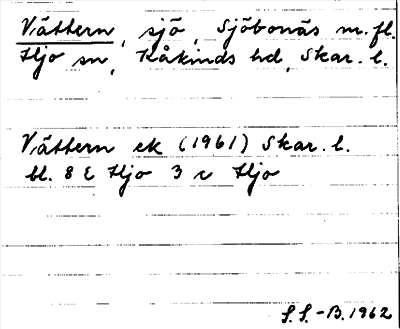 Vättern, sjö, Sjöbonäs m.fl.
Hjo sn, Kåkinds hd, Skar. l.
Vättern ek (1961) Skar. l.
bl. 8 E Hjo 3 c Hjo
S.S.-B. 1962